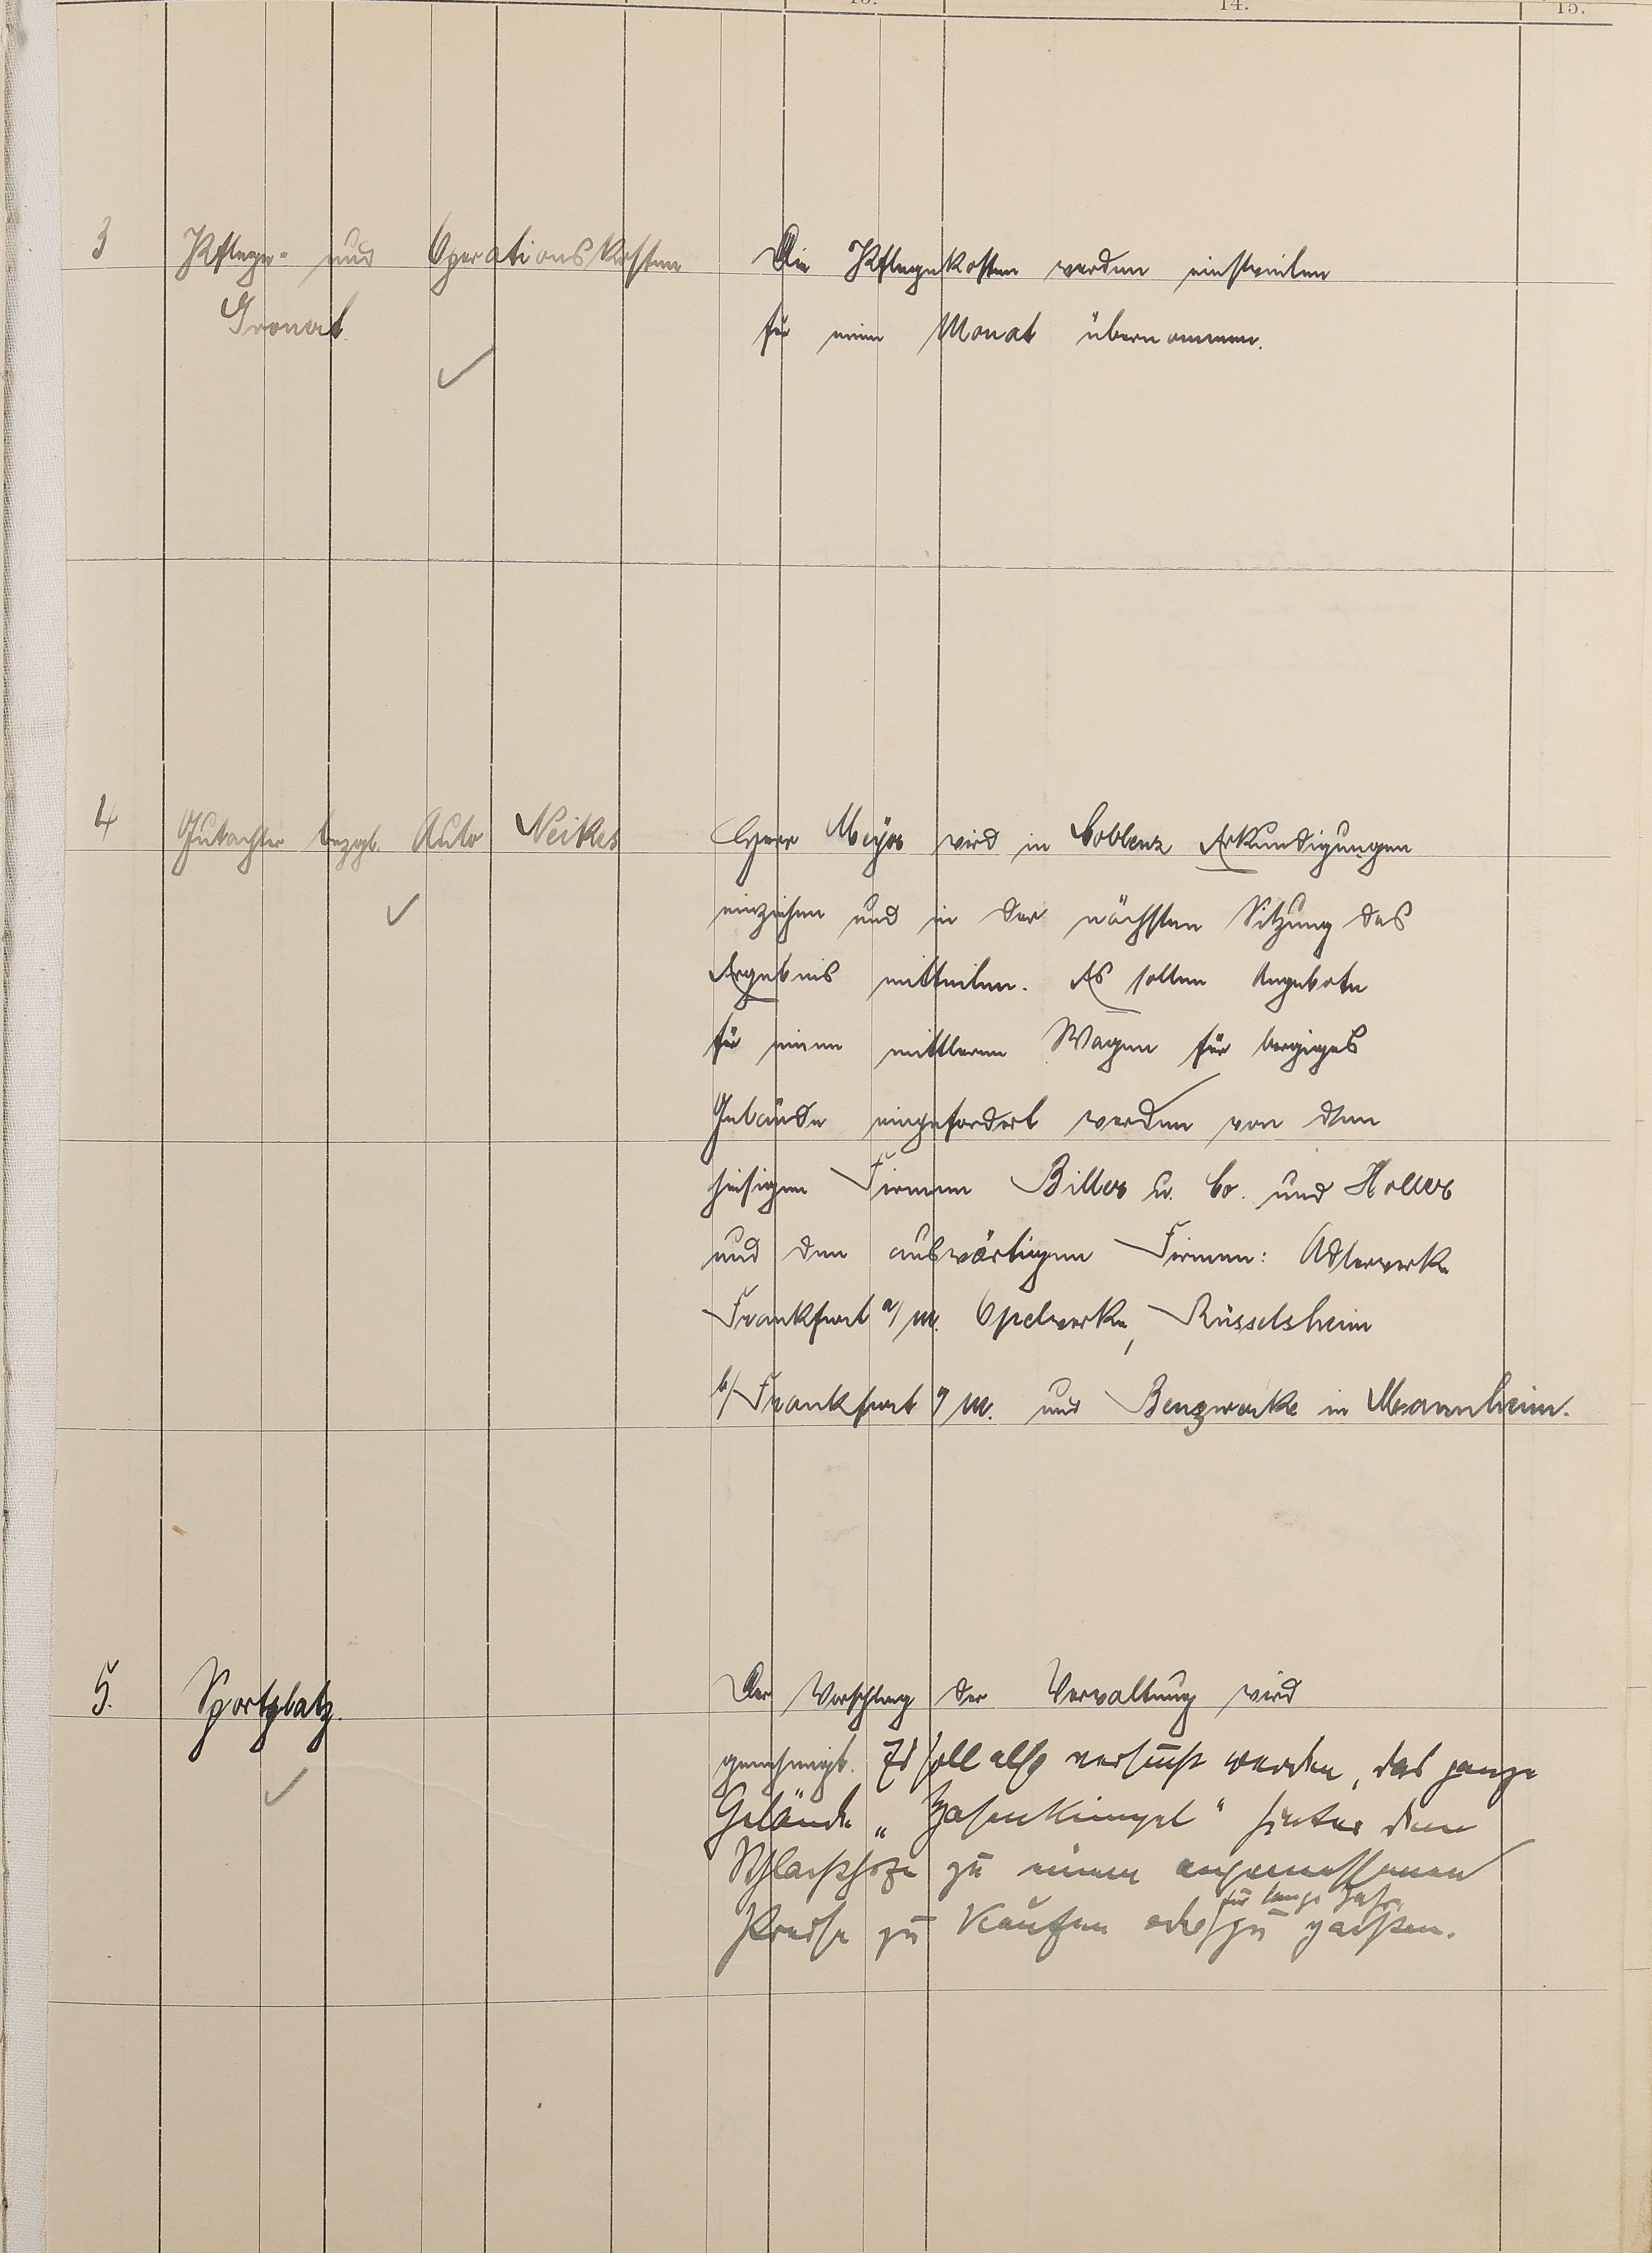 13. 14. 15.
3 Pflege- und Operationskosten
Gronat
Die Pflegekosten werden einstweilen
für einen Monat übernommen.
4 Gutachter bezgl. Auto Neikes
Herr Meyer wird in Coblenz Erkundigungen
einziehen und in der nächsten Sitzung das
Ergebnis mitteilen. Es sollen Angebote
für einen mittleren Wagen für bergiges
Gelände eingefordert werden von den
hiesigen Firmen Biller u. Co. und Holler
und den auswärtigen Firmen: Adlerwerke
Frankfurt a/M. Opelwerke, Rüsselsheim
b/Frankfurt a/M. und Benzwerke in Mannheim.
5. Sportplatz.
Der Vorschlag der Verwaltung wird
genehmigt. Es soll also versucht werden, das ganze
Gelände „Hasenkimpel" hinter dem
Schlachthofe zu einem angemessenen
für lange Jahre
Preise zu kaufen oder zu pachten.